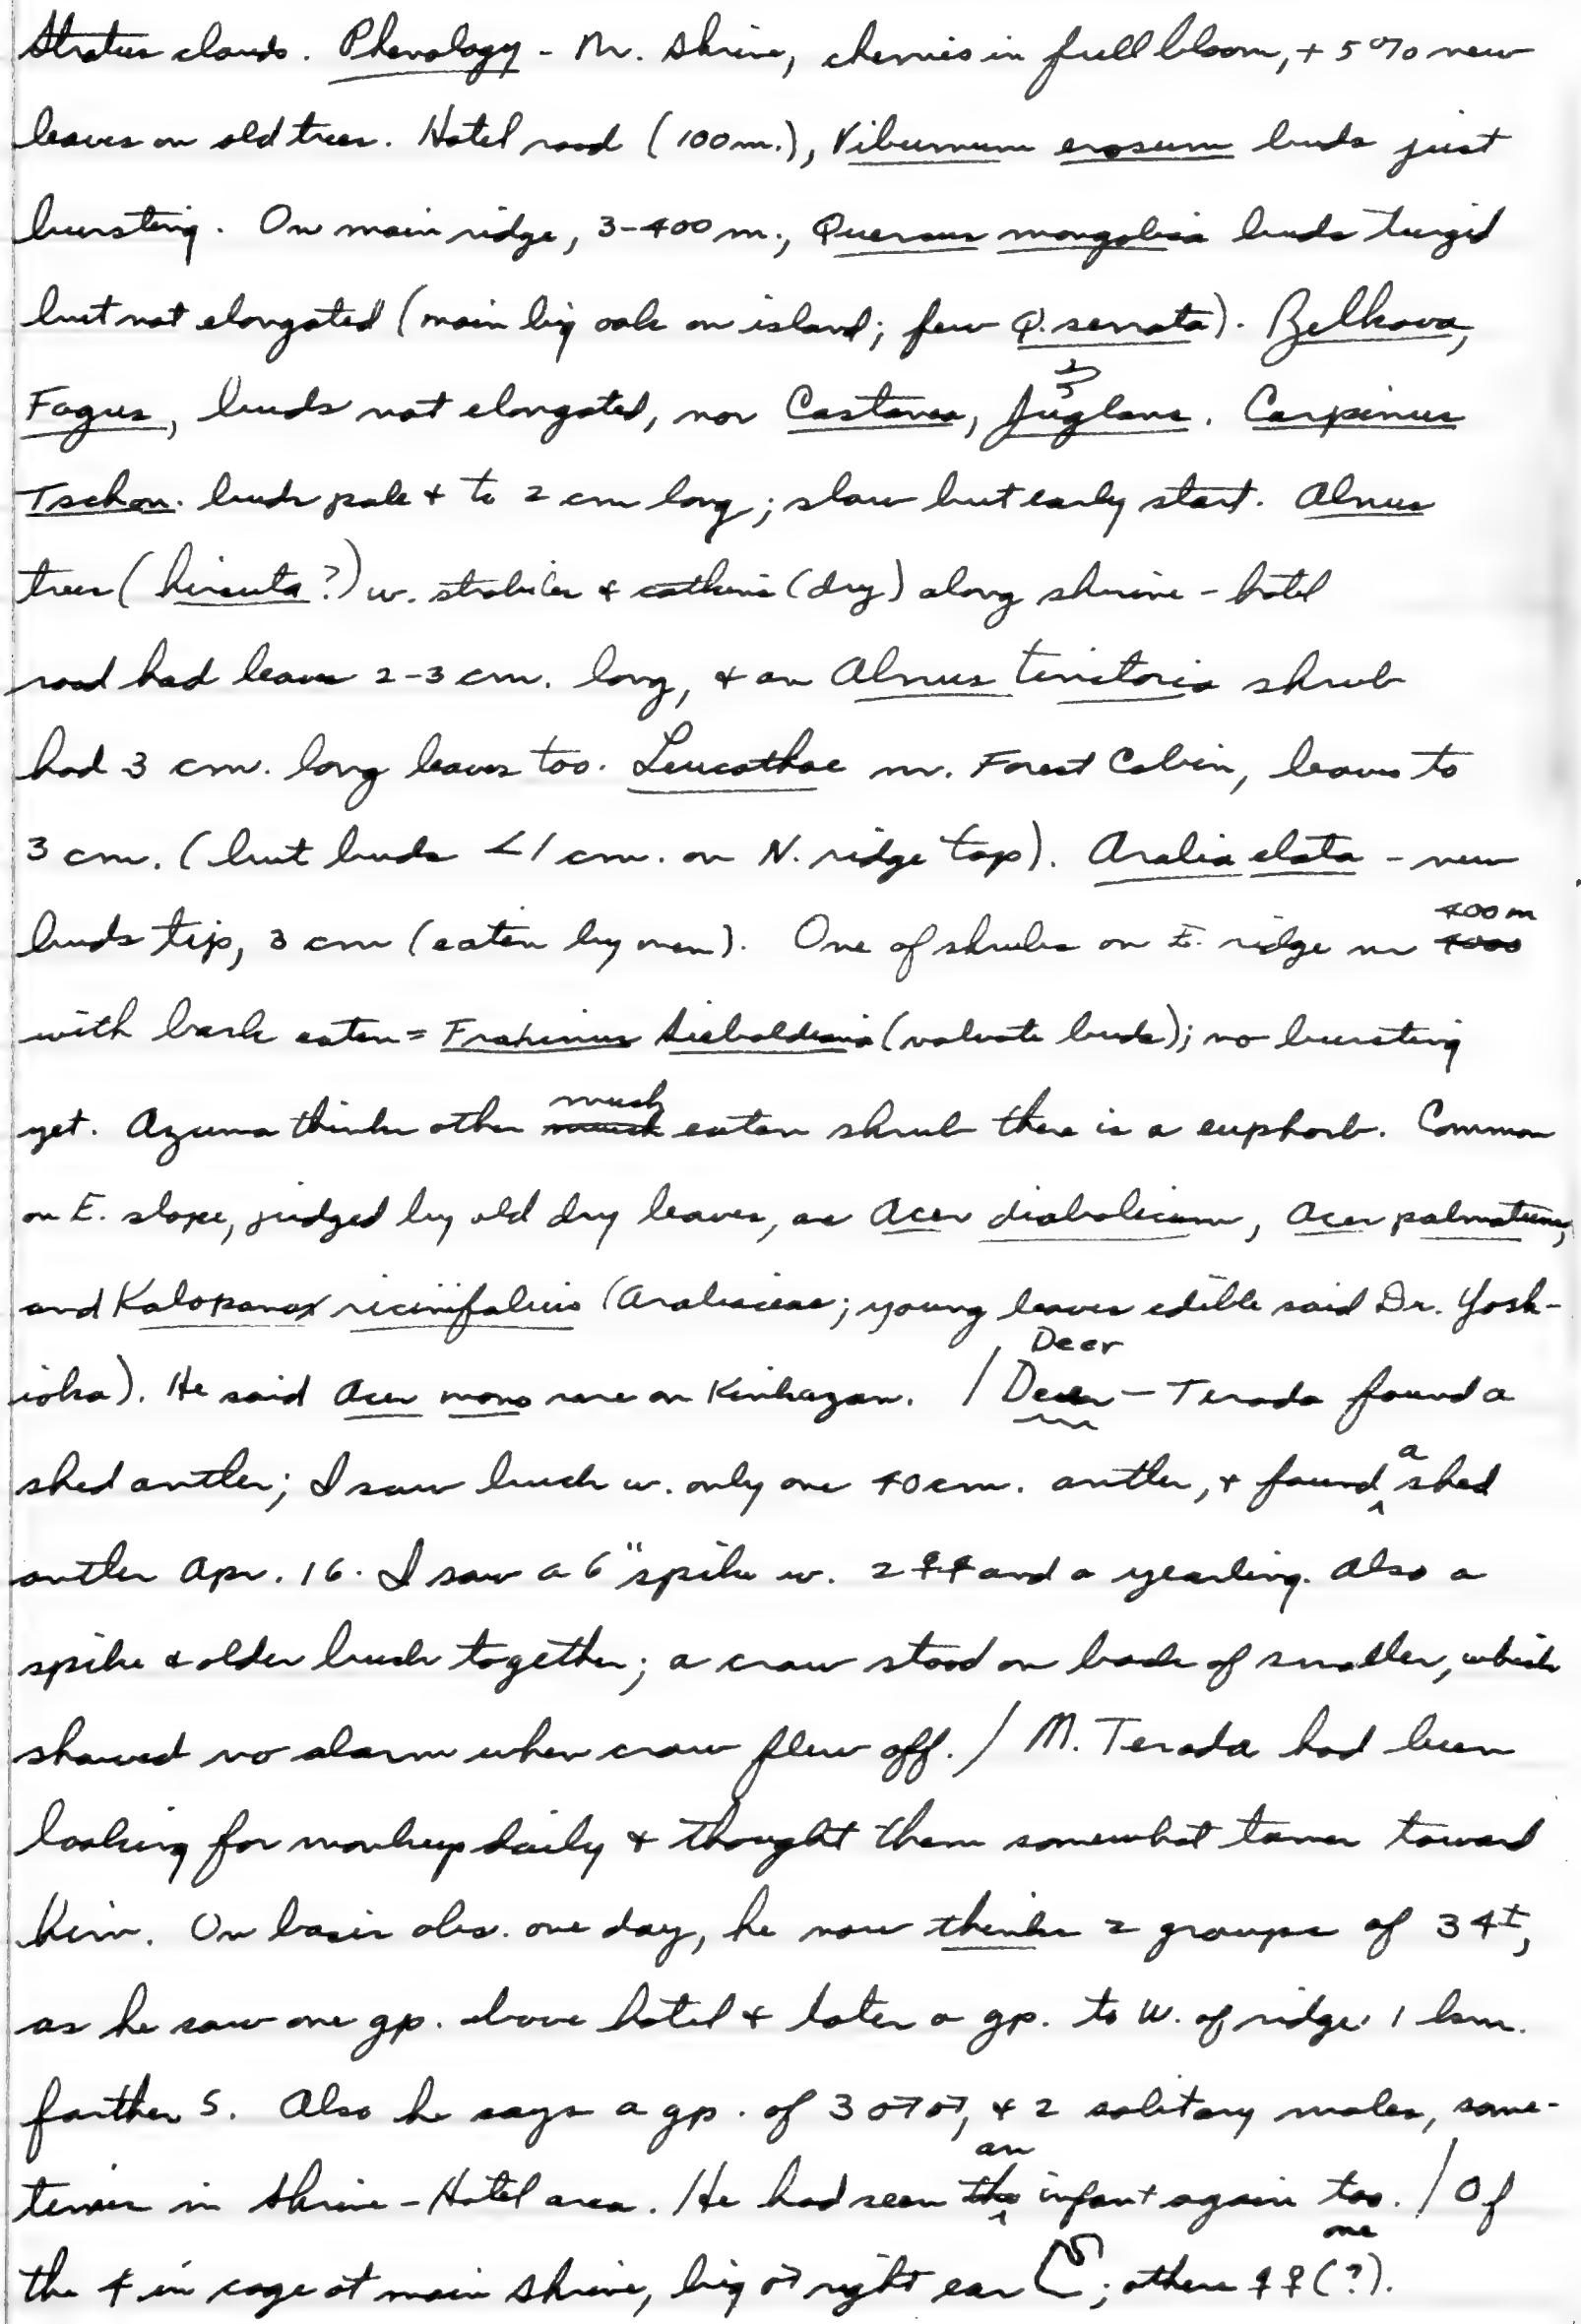 Stratus clouds. Phenology - Nr. Shrine, cherries in full bloom, + 5% new
leaves on old trees. Hotel road (100 m.), Viburnum erosum buds just
bursting. On main ridge, 3-400 m., Quercus mongolica buds turgid
but not elongated (main big oak on island; few Q. serrata). Zelkova,
Fagus, buds not elongated, nor Castanea, Juglans. Carpinus
Tschon. buds pale + to 2 cm long; slow but early start. Alnus
trees (hirsuta?) w. strobiles + catkins (dry) along shrine - hotel
road had leaves 2-3 cm. long, + an Alnus tinctoria shrub
had 3 cm. long leaves too. Leucothoe nr. Forest Cabin, leaves to
3 cm. (but buds <1 cm. on N. ridge top). Aralia elata - new
buds tip, 3 cm (eaten by men). One of shrubs on E. ridge nr 400 m
with bark eaten = Fraxinus Sieboldiana (valvate buds); no bursting
yet. Azuma thinks other much eaten shrub there is a euphorb. Common
on E. slope, judged by old dry leaves, are Acer diabolicum, Acer palmatum,
and Kalopanax ricinifolius (Araliaceae; young leaves edible said Dr. Yosh-
ioka). He said Acer mono rare on Kinkazan. / Deer Deer - Terada found a
shed antler; I saw buck w. only one 40 cm. antler, + found a shed
antler Apr. 16. I saw a 6" spike w. 2 ♀♀ and a yearling. Also a
spike + older buck together; a crow stood on back of smaller, which
showed no alarm when crow flew off. / M. Terada had been
looking for monkeys daily + thought them somewhat tamer toward
him. On basis obs. one day, he now thinks 2 groups of 34±,
as he saw one gp. above hotel + later a gp. to W. of ridge 1 km.
farther S. Also he says a gp. of 3 ♂♂, + 2 solitary males, some-
times in Shrine - Hotel area. He had seen an infant again too. / Of
the 4 in cage at main shrine, big ♂ right ear ; others ♀♀ (?).